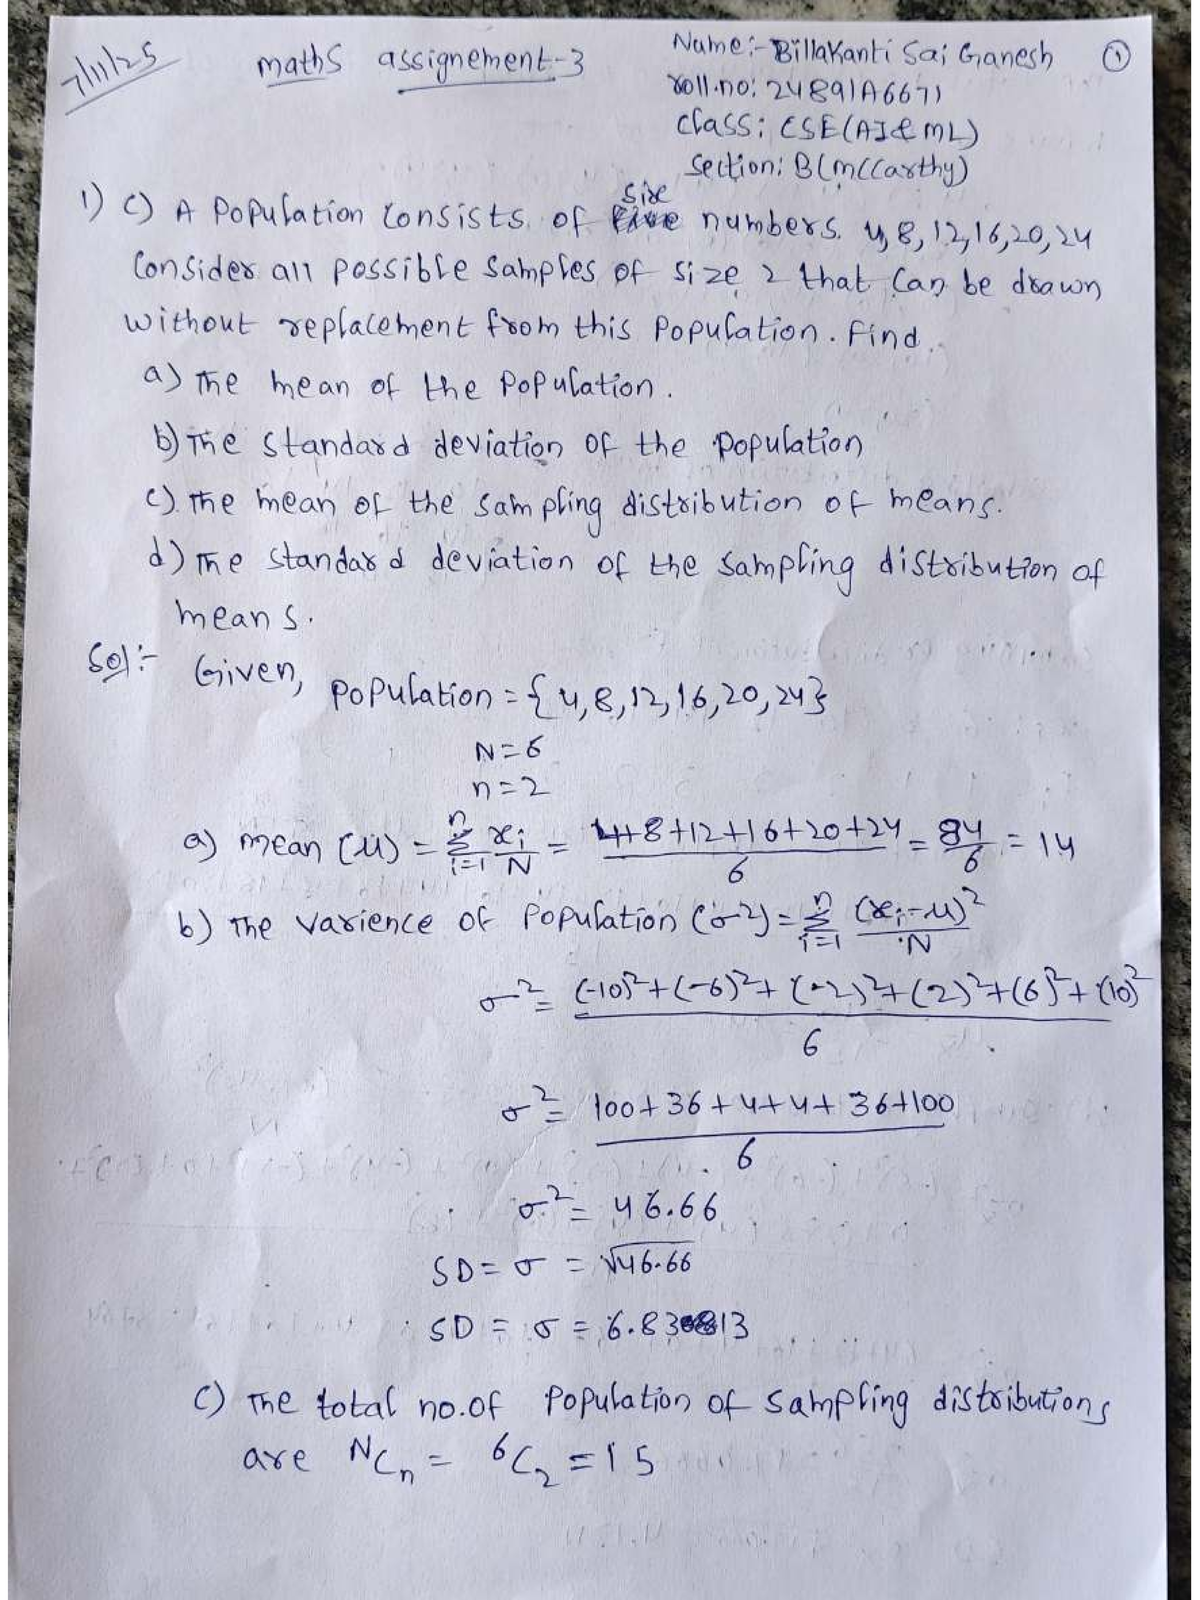 7/11/25
maths assignement-3
Name:- Billakanti Sai Ganesh 1
roll.no: 24891A6671
class: CSE(AI&ML)
Section: B(mccarthy)
1) c) A Population consists of six numbers. 4,8,12,16,20,24
Consider all possible samples of size 2 that can be drawn
without replacement from this population. Find.
a) The mean of the population.
b) The standard deviation of the population
c). The mean of the sampling distribution of means.
d) The standard deviation of the sampling distribution of
means.
Sol:- Given, population = {4,8,12,16,20,24}
N=6
n=2
a) mean (μ) = n Σ i=1 xi/N = 4+8+12+16+20+24/6 = 84/6 = 14
b) The varience of population (σ²) = n Σ i=1 (xi-μ)²/N
σ² = (-10)²+(-6)²+(-2)²+(2)²+(6)²+(10)²/6
σ² = 100+36+4+4+36+100/6
σ² = 46.66
SD = σ = √46.66
SD = σ = 6.8313
c) The total no.of population of sampling distributions
are NCn = 6C2 = 15